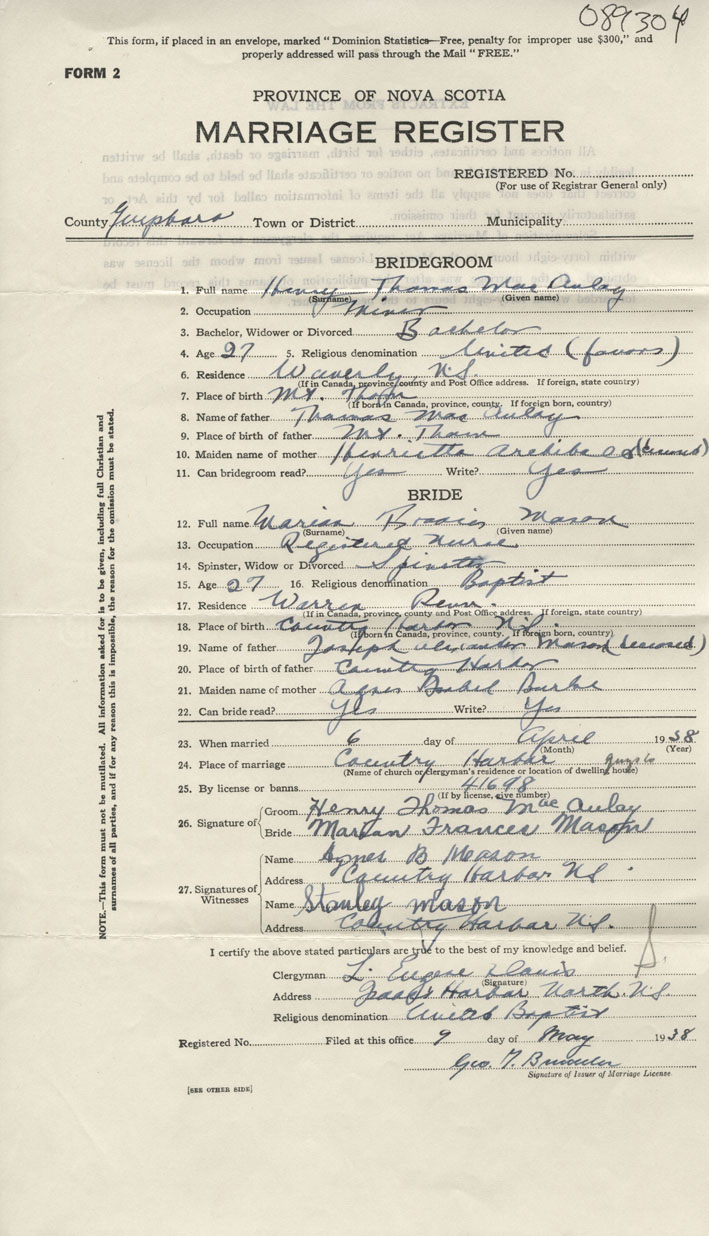 089304
This form, if placed in an envelope, marked "Dominion Statistics—Free, penalty for improper use $300," and
properly addressed will pass through the Mail "FREE."
FORM 2
PROVINCE OF NOVA SCOTIA
MARRIAGE REGISTER
REGISTERED No.
(For use of Registrar General only)
County Guysboro Town or District Municipality
BRIDEGROOM
1. Full name Henry Thomas MacAulay
(Surname) (Given name)
2. Occupation Miner
3. Bachelor, Widower or Divorced Bachelor
4. Age 27 5. Religious denomination United (favors)
6. Residence Waverly N.S.
(If in Canada, province, county and Post Office address. If foreign, state country)
7. Place of birth Mt. Thom
(If born in Canada, province, county. If foreign born, country)
8. Name of father Thomas MacAulay
9. Place of birth of father Mt. Thom
10. Maiden name of mother Henrietta Archibald (deceased)
11. Can bridegroom read? Yes Write? Yes
BRIDE
12. Full name Marian Mason
(Surname) (Given name)
13. Occupation Registered Nurse
14. Spinster, Widow or Divorced Spinster
15. Age 27 16. Religious denomination Baptist
17. Residence Warren
(If in Canada, province, county and Post Office address. If foreign, state country)
18. Place of birth Country Harbor N.S.
(If born in Canada, province, county. If foreign born, country)
19. Name of father Joseph Alexander Mason (deceased)
20. Place of birth of father Country Harbor
21. Maiden name of mother Agnes Burke
22. Can bride read? Yes Write? Yes
23. When married 6 day of April 1938
(Month) (Year)
24. Place of marriage Country Harbor Guysboro
(Name of church or clergyman's residence or location of dwelling house)
25. By license or banns 41698
(If by license, give number)
26. Signature of Groom Henry Thomas MacAulay
Bride Marian Frances Mason
27. Signatures of Witnesses
Name Agnes B Mason
Address Country Harbor NS
Name Stanley Mason
Address Country Harbor N.S.
I certify the above stated particulars are true to the best of my knowledge and belief.
Clergyman L. Eugene Davis
(Signature)
Address Isaac's Harbor North N.S.
Religious denomination United Baptist
Registered No. Filed at this office 9 day of May 1938
Geo. T.
Signature of Issuer of Marriage License
[SEE OTHER SIDE]
NOTE.—This form must not be mutilated. All information asked for is to be given, including full Christian and
surnames of all parties, and if for any reason this is impossible, the reason for the omission must be stated.